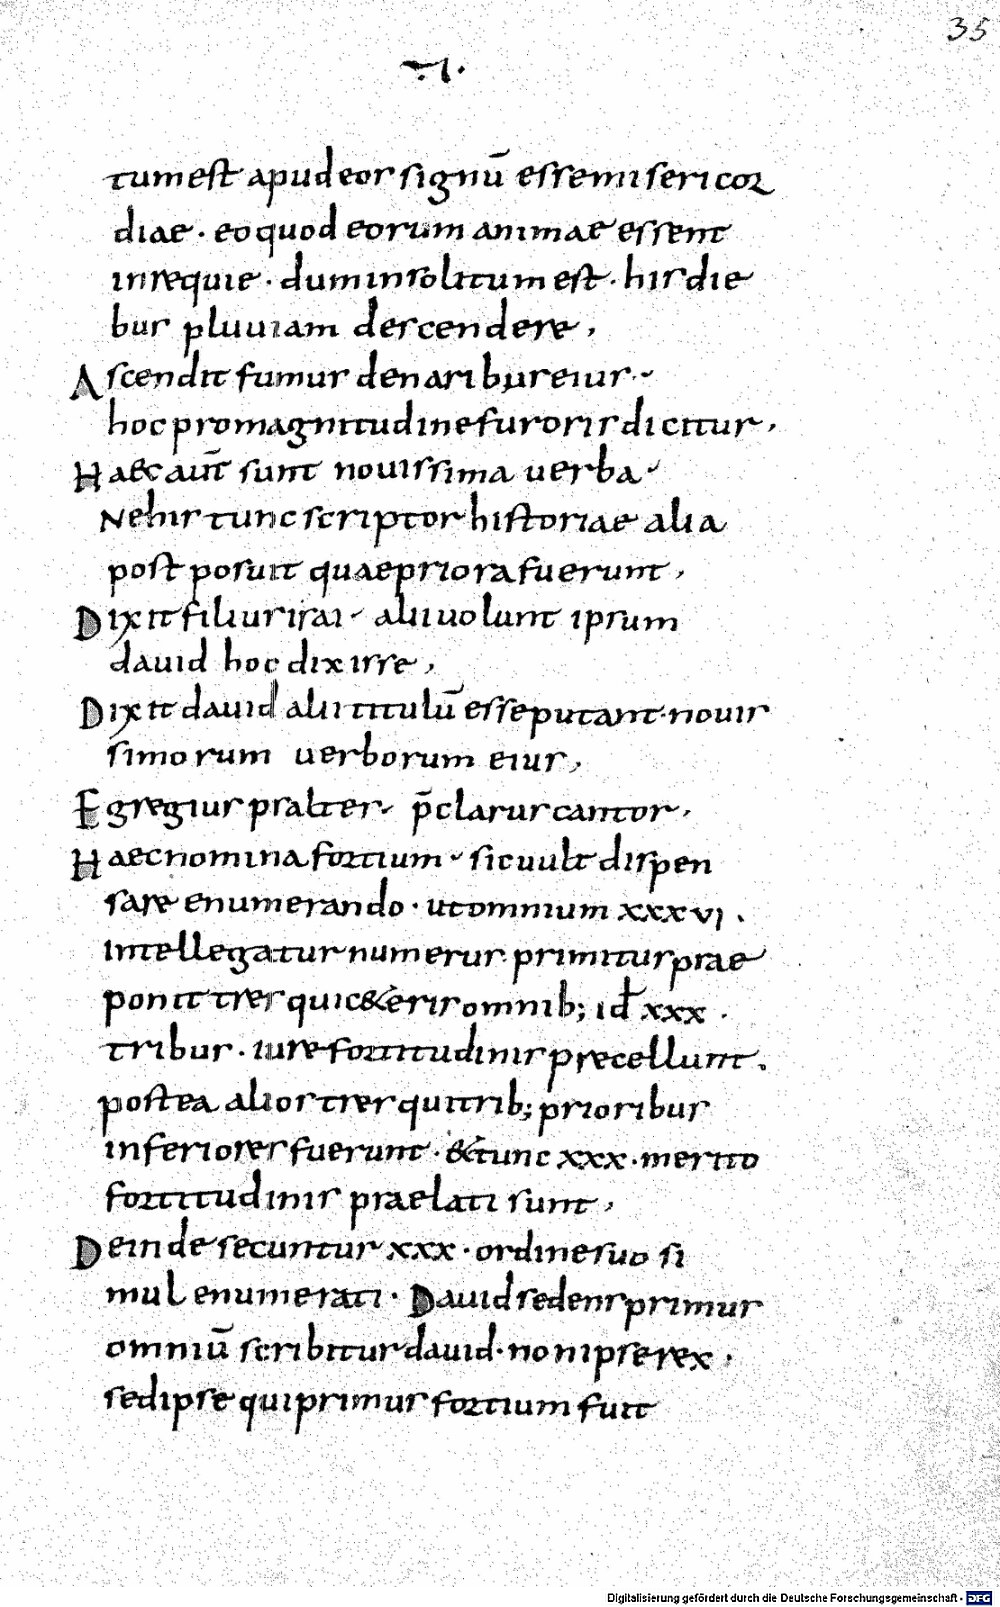 35
·I·
tum est apud eos signū esse misericor
diae · eo quod eorum animae essent
in requie · dum insolitum est · his die
bus pluuiam descendere,
Ascendit fumus de naribus eius ·
hoc pro magnitudine furoris dicitur,
Haec aut̄ sunt nouissima uerba ·
Nehis tunc scriptor historiae alia
post posuit quae priora fuerunt,
Dixit filius isai · alii uolunt ipsum
dauid hoc dixisse,
Dixit dauid alii titulū esse putant · nouis
simorum uerborum eius,
Egregius psalter · p̄clarus cantor,
Haec nomina fortium · sic uult dispen
sare enumerando · ut omnium xxxvi .
intellegatur numerus primitus prae
ponit tres qui c&eris omnib; id̄ xxx .
tribus · iure fortitudinis precellunt .
postea alios tres qui trib; prioribus
inferiores fuerunt · &tunc xxx · merito
fortitudinis praelati sunt,
Deinde secuntur xxx · ordine suo si
mul enumerati · Dauid sedens primus
omniū scribitur dauid · non ipse rex ,
sed ipse qui primus fortium fuit
Digitalisierung gefördert durch die Deutsche Forschungsgemeinschaft - DFG